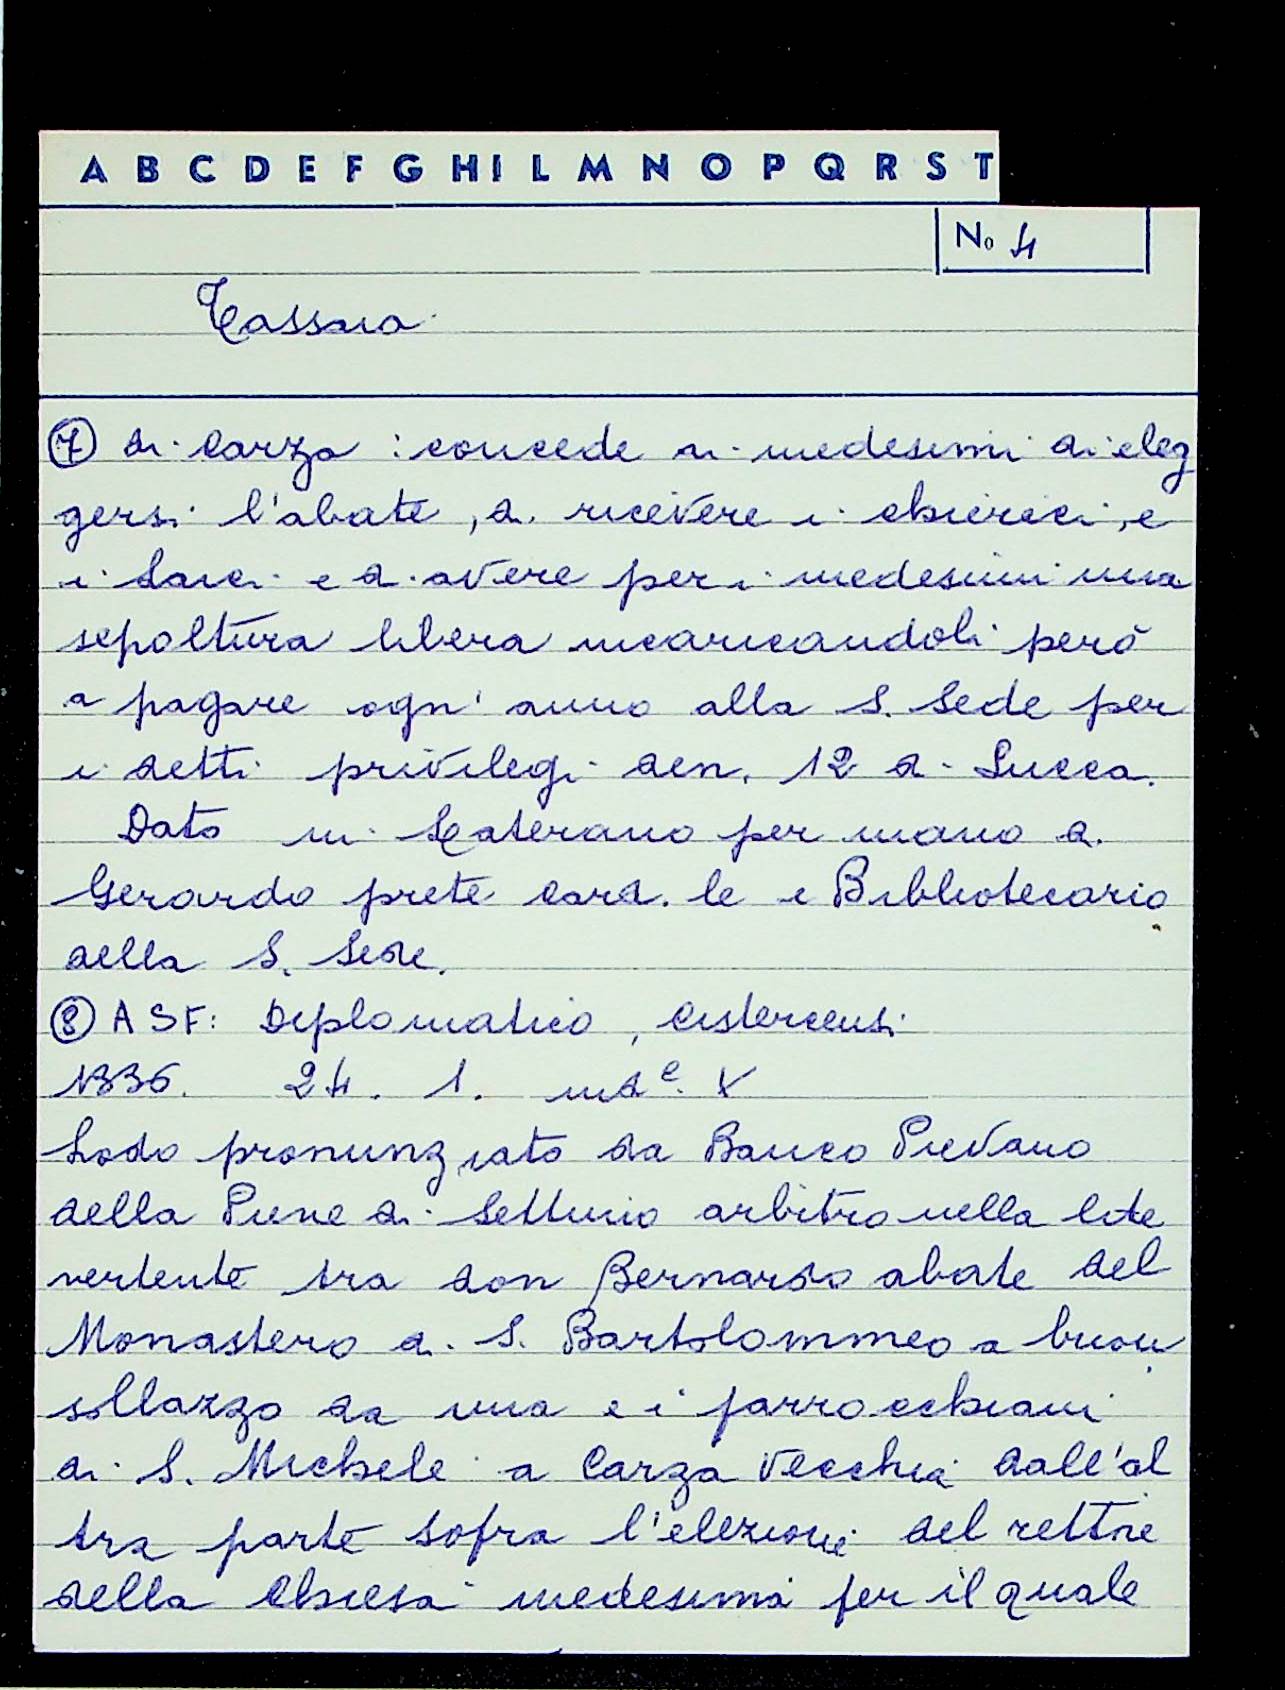 A B C D E F G H I L M N O P Q R S T
No 4
Tassaia
7 di Carza : concede ai medesimi di eleg
gersi l'abate, di ricevere i chierici, e
i laici e di avere per i medesimi una
sepoltura libera incaricandoli però
a pagare ogni anno alla S. Sede per
i detti privilegi den. 12 di Lucca.
Dato in Laterano per mano di
Gerardo prete card. le e Bibliotecario
della S. Sede.
8 ASF: Diplomatico, Cistercensi
1336. 24. 1. indᵉ. V
Lodo pronunziato da Banco Pievano
della Pieve di Settimo arbitro nella lite
vertente tra don Bernardo abate del
Monastero di S. Bartolommeo a buon
sollazzo da una e i parrocchiani
di S. Michele a Carza Vecchia dall'al
tra parte sopra l'elezione del rettore
della Chiesa medesima per il quale